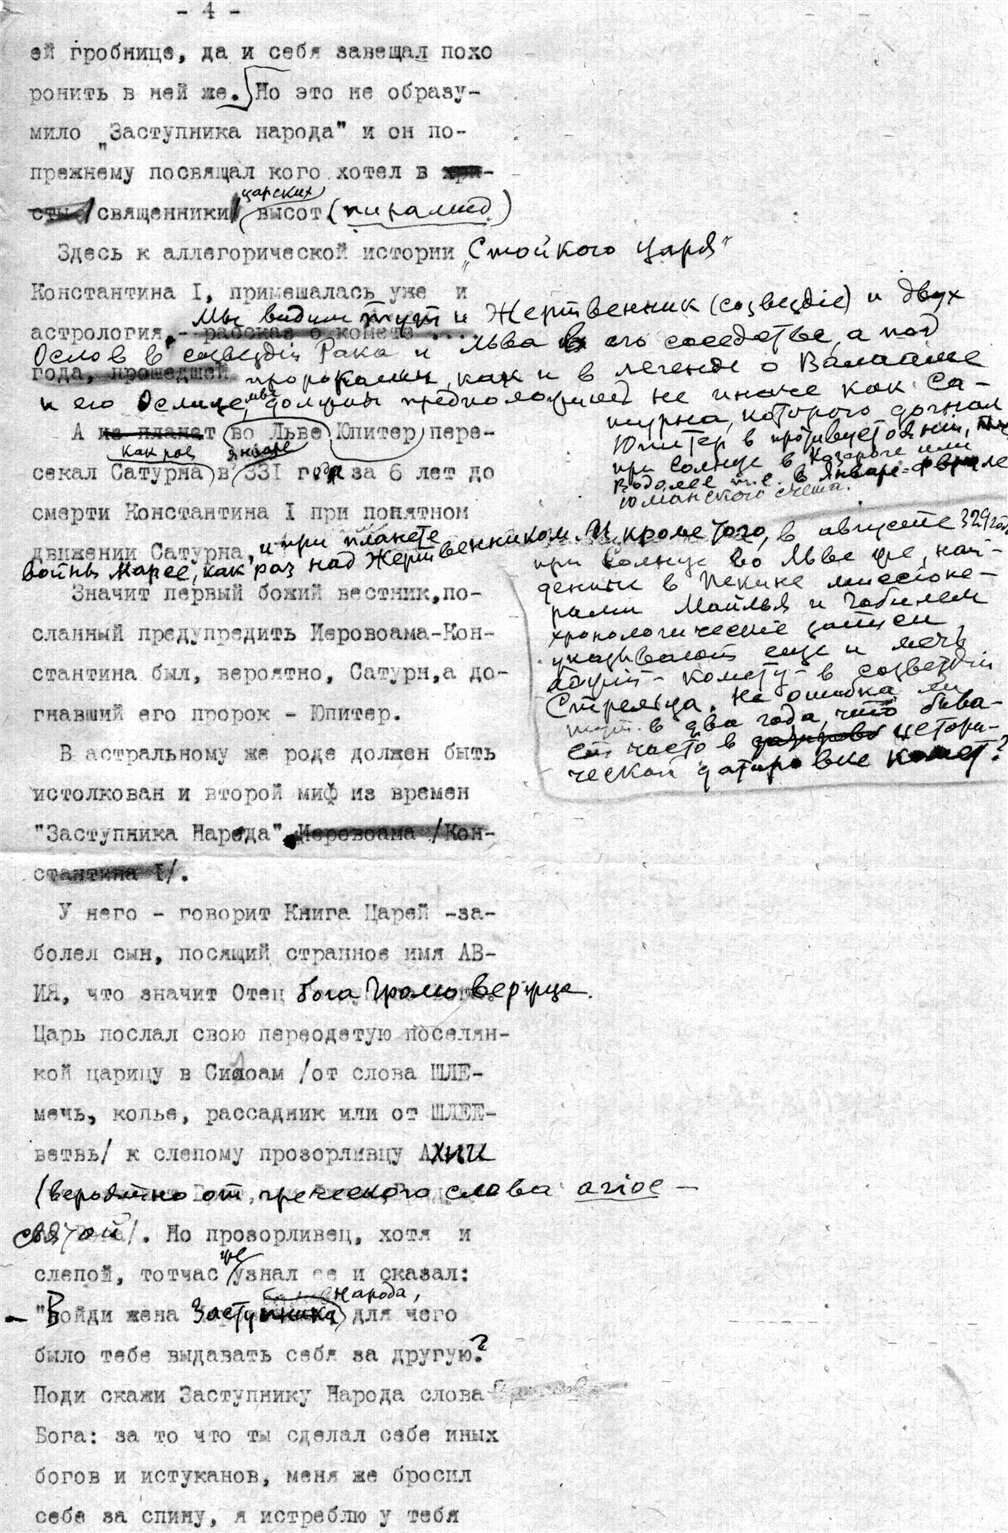 - 4 -
ей гробнице, да и себя завещал похо
ронить в ней же. Но это не образу-
мило „Заступника народа" и он по-
прежнему посвящал кого хотел в хри-
сты /священники/ царских высот (пирамид)
Здесь к аллегорической истории „Стойкого царя"
Константина I, примешалась уже и
астрология, - рассказ о комете ....
Мы видим тут и Жертвенник (созвездіе) и двух
Ослов в созвездіи Рака и Льва в его соседстве, а под
года, прошедшей
пророками, как и в легенде о Валааме
и его Ослице, мы должны предположить не иначе как Са-
турна, которого догнал
Юпитер в противустоянии,
при Солнце в Козероге или
Водолее т.е. в Январе-Феврале
юлианского счета.
А из планет во Льве Юпитер пере-
как раз в январе
секал Сатурна в 331 году за 6 лет до
смерти Константина I при понятном
движении Сатурна, и при планете
войны Марсе, как раз над Жертвенником. И кроме того, в августе 329 года
при Солнце во Льве же, най-
денные в Пекине миссионе-
рами Майлья и Гобилем
хронологические записи
указывают еще и мечь
- комету - в созвездіи
Стрельца. Не ошибка ли
тут в два года, что быва-
ет часто в истори-
ческой датировке комет?
Значит первый божий вестник, по-
сланный предупредить Иеровоама-Кон-
стантина был, вероятно, Сатурн, а до-
гнавший его пророк - Юпитер.
В астральному же роде должен быть
истолкован и второй миф из времен
"Заступника Народа". Иеровоама /Кон-
стантина I/.
У него - говорит Книга Царей -за-
болел сын, носящий странное имя АВ-
ИЯ, что значит Отец бога Громовержца.
Царь послал свою переодетую поселян-
кой царицу в Силоам /от слова ШЛЕ-
мечь, копье, рассадник или от ШЛЕЕ-
ветвь/ к слепому прозорливцу Ахии
(вероятно от греческого слова агіос -
святой/. Но прозорливец, хотя и
слепой, тотчас же узнал ее и сказал:
- "Войди жена Заступника народа, для чего
было тебе выдавать себя за другую?
Поди скажи Заступнику Народа слова
Бога: за то что ты сделал себе иных
богов и истуканов, меня же бросил
себе за спину, я истреблю у тебя